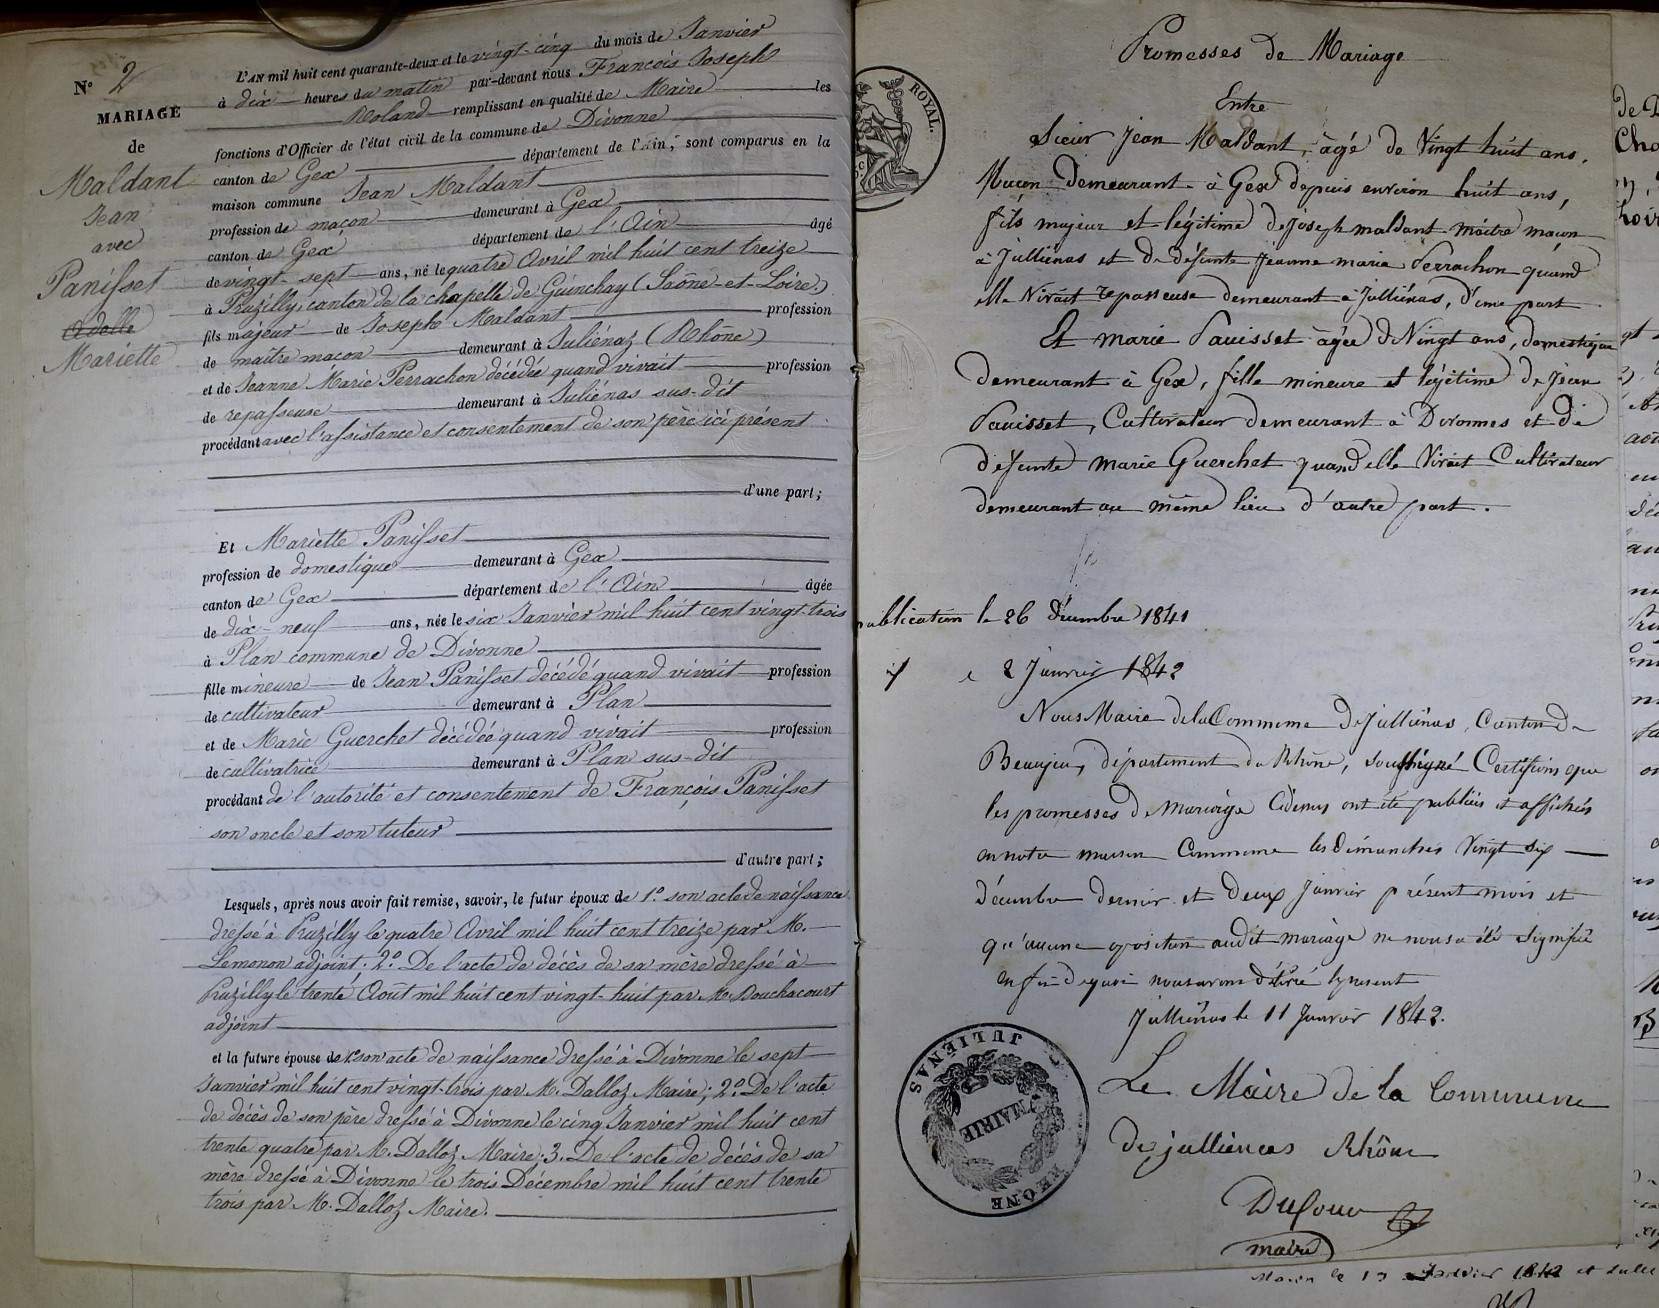 N° 2
MARIAGE
de
Maldant
Jean
avec
Panisset
Adelle
Mariette
L'AN mil huit cent quarante-deux et le vingt-cinq du mois de Janvier
à dix heures du matin par-devant nous François Joseph
Roland remplissant en qualité de Maire les
fonctions d'Officier de l'état civil de la commune de Divonne
canton de Gex département de l'Ain, sont comparus en la
maison commune Jean Maldant
profession de maçon demeurant à Gex
canton de Gex département de l'Ain âgé
de vingt-sept ans, né le quatre Avril mil huit cent treize
à Pruzilly, canton de la chapelle de Guinchay (Saône-et-Loire.)
fils majeur de Joseph Maldant profession
de maître maçon demeurant à Juliénaz (Rhône)
et de Jeanne Marie Perrachon décédée quand vivait profession
de repasseuse demeurant à Juliénas sus-dit
procédant avec l'assistance et consentement de son père ici présent
d'une part;
Et Mariette Panisset
profession de domestique demeurant à Gex
canton de Gex département de l'Ain âgée
de dix-neuf ans, née le six Janvier mil huit cent vingt-trois
à Plan commune de Divonne
fille mineure de Jean Panisset décédé quand vivait profession
de cultivateur demeurant à Plan
et de Marie Guerchet décédée quand vivait profession
de cultivatrice demeurant à Plan sus-dit
procédant de l'autorité et consentement de François Panisset
son oncle et son tuteur
d'autre part;
Lesquels, après nous avoir fait remise, savoir, le futur époux de 1°. son acte de naissance
dressé à Pruzilly le quatre Avril mil huit cent treize par M.
Lemonon adjoint; 2°. De l'acte de décès de sa mère dressé à
Pruzilly le trente Août mil huit cent vingt-huit par M. Douchacourt
adjoint
et la future épouse de 1° son acte de naissance dressé à Divonne le sept
Janvier mil huit cent vingt-trois par M. Dalloz Maire; 2°. De l'acte
de décès de son père dressé à Divonne le cinq Janvier mil huit cent
trente quatre par M. Dalloz Maire; 3. De l'acte de décès de sa
mère dressé à Divonne le trois Décembre mil huit cent trente
trois par M. Dalloz Maire.
ROYAL.
Promesses de Mariage
Entre
Sieur Jean Maldant, âgé de Vingt huit ans,
Maçon Demeurant à Gex depuis environ huit ans,
fils majeur et légitime de joseph maldant maître maçon
à Julliénas et De défunte Jeanne marie Perrachon quand
elle Vivait repasseuse demeurant à Julliénas, d'une part
Et marie Panisset âgée de Vingt ans, domestique
demeurant à Gex, fille mineure et légitime de Jean
Panisset, Cultivateur demeurant à Divonnes et de
défunte marie Guerchet quand elle Vivait Cultivateur
demeurant au même lieu d'autre part.
publication le 26 décembre 1841
et le 2 Janvier 1842
Nous Maire de la Commune de Julliénas, Canton de
Beaujeu, département du Rhône, soussigné Certifions que
les promesses de Mariage Cidessus ont été publiées et affichées
en notre maison Commune les dimanches Vingt six
décembre dernier et deux Janvier présent mois et
qu'aucune oposition audit mariage ne nous a été signifié
en foi de quoi nous avons délivré le présent
Julliénas le 11 Janvier 1842.
Le Maire de la Commune
de julliénas Rhône
Dufour
maire
MAIRIE
JULIÉNAS
RHÔNE